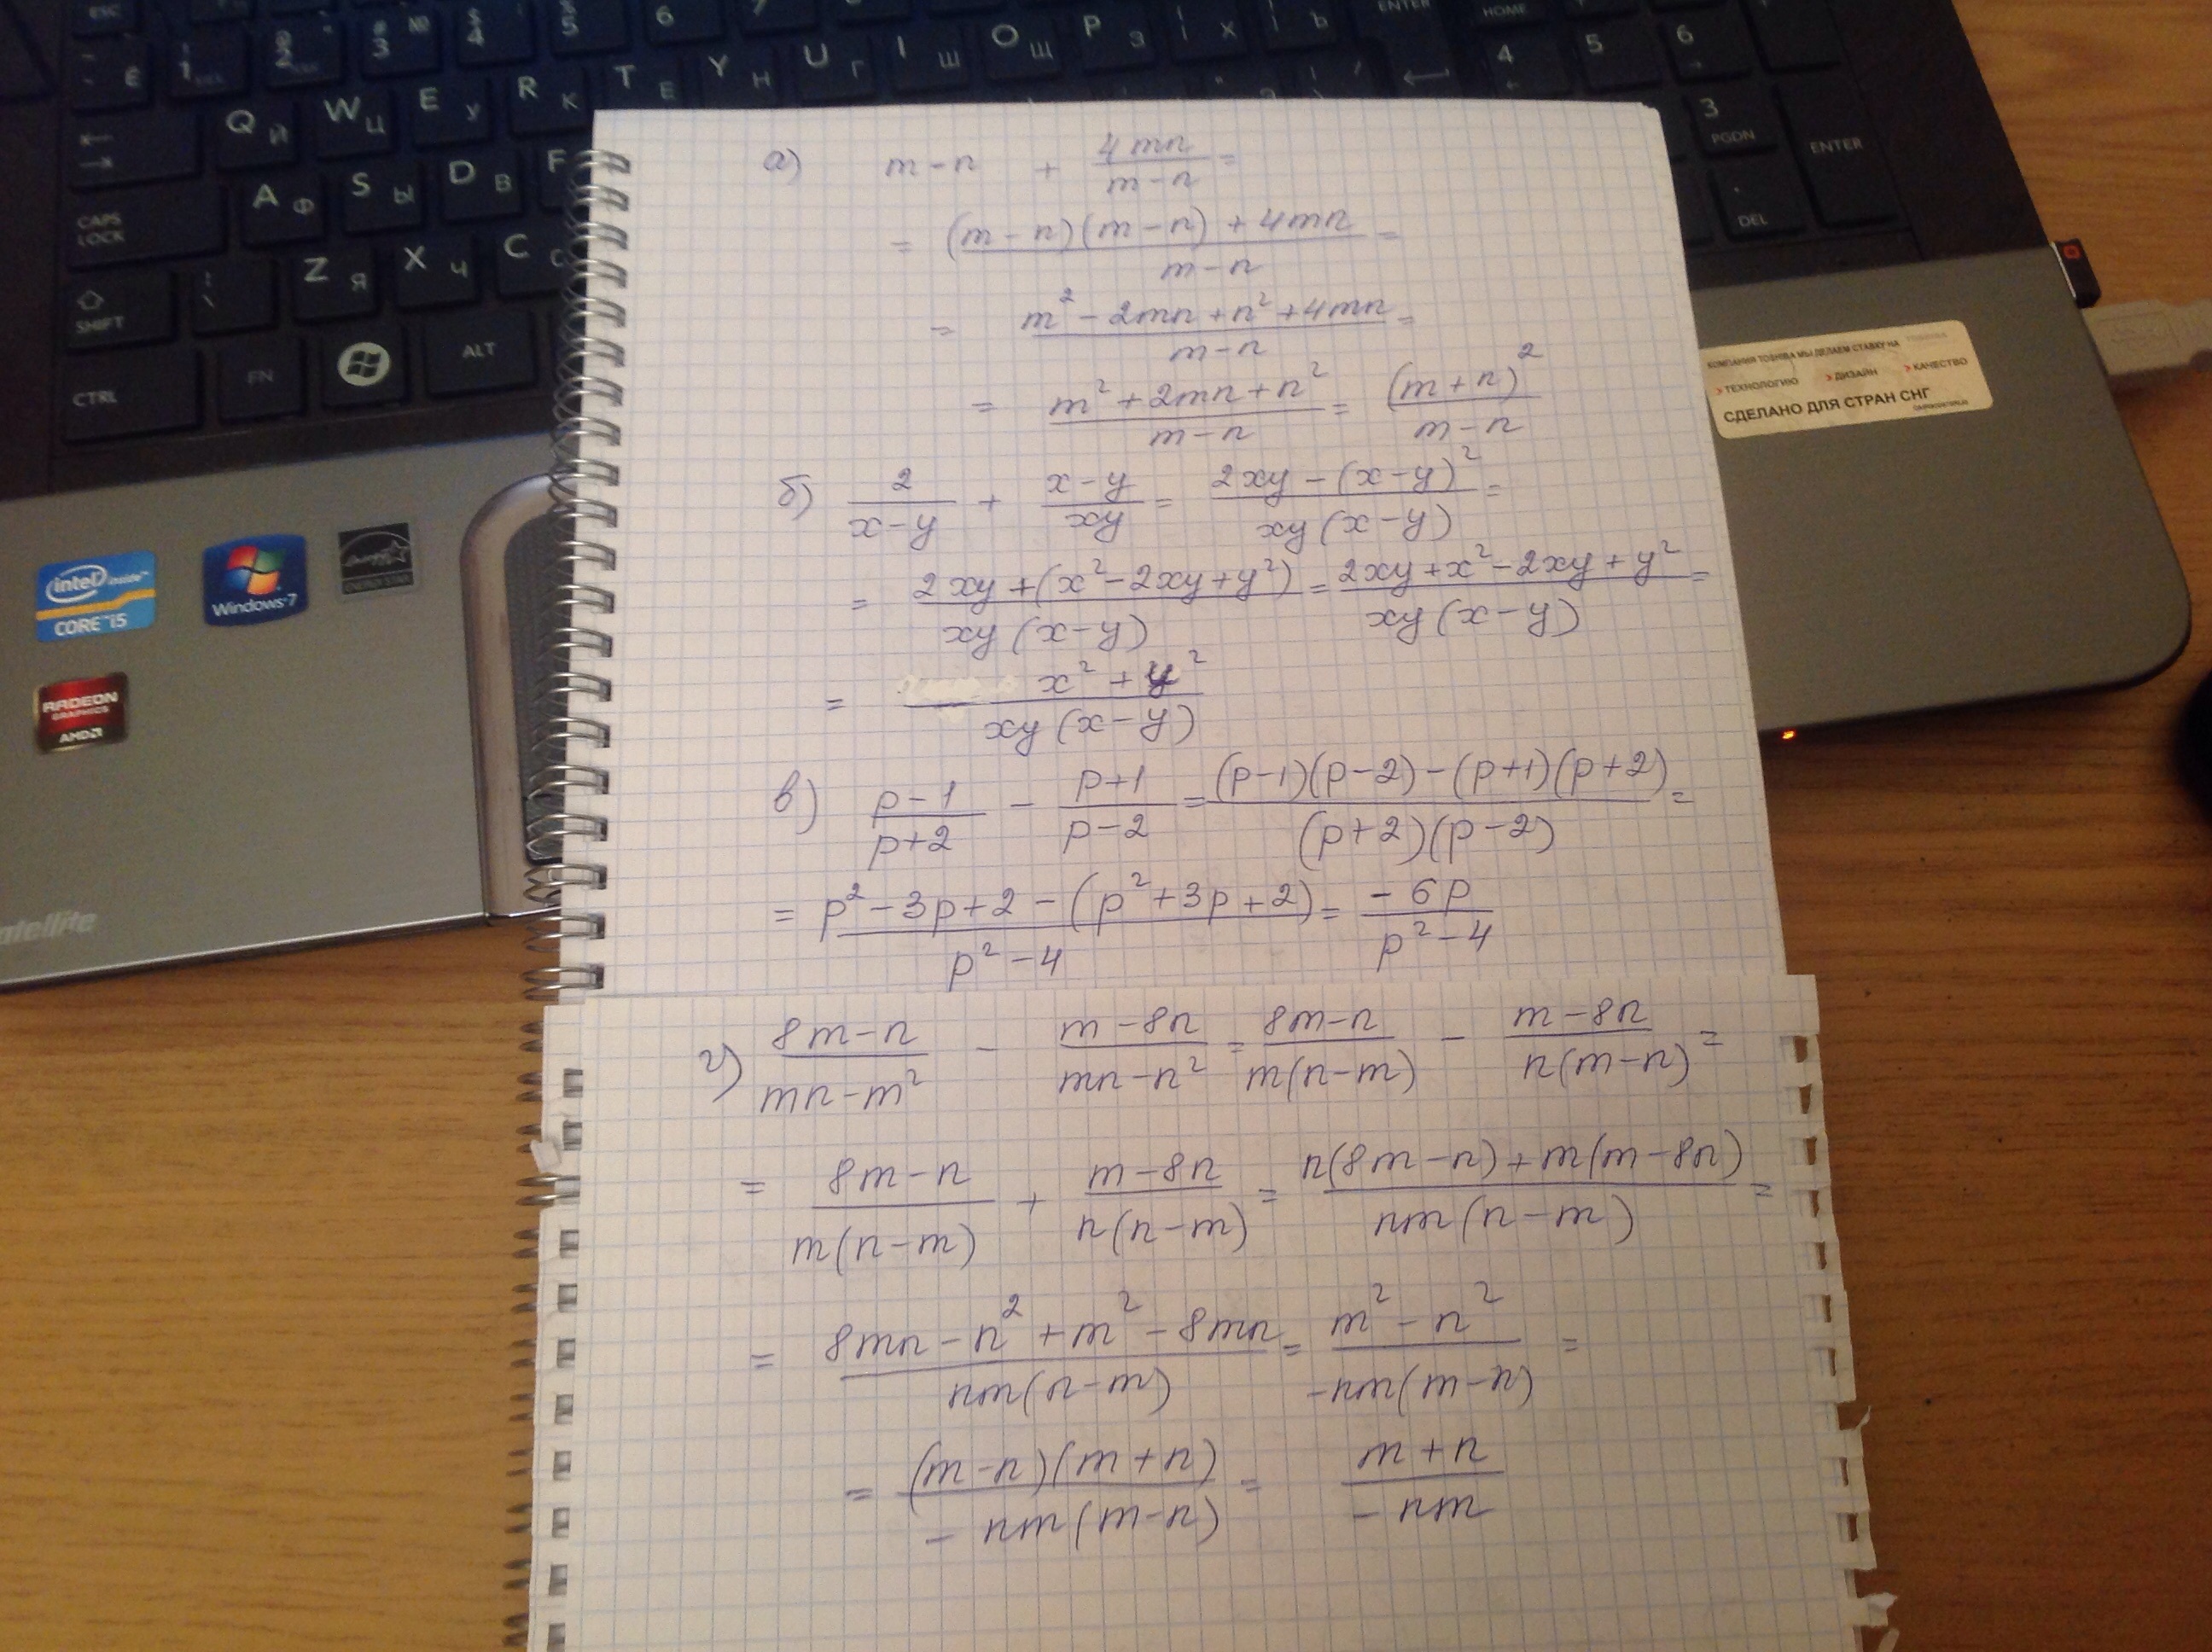 # 3 №
$ 4
5
6
7
ENTER
HOME
Ё
1
@ 2
4
5
6
Q Й
W Ц
E У
R К
T Е
Y Н
U Г
I Ш
O Щ
P З
Х
Ъ
3
PGDN
ENTER
CAPS LOCK
A Ф
S Ы
D В
F
DEL
SHIFT
Z Я
X Ч
C С
CTRL
FN
ALT
КОМПАНИЯ TOSHIBA МЫ ДЕЛАЕМ СТАВКУ НА
> ТЕХНОЛОГИЮ > ДИЗАЙН > КАЧЕСТВО
СДЕЛАНО ДЛЯ СТРАН СНГ
intel inside™
CORE™ i5
Windows 7
ENERGY STAR
RADEON
GRAPHICS
AMD
а) m-n + \frac{4mn}{m-n} =
= \frac{(m-n)(m-n)+4mn}{m-n} =
= \frac{m^2-2mn+n^2+4mn}{m-n} =
= \frac{m^2+2mn+n^2}{m-n} = \frac{(m+n)^2}{m-n}
б) \frac{2}{x-y} + \frac{x-y}{xy} = \frac{2xy-(x-y)^2}{xy(x-y)} =
= \frac{2xy+(x^2-2xy+y^2)}{xy(x-y)} = \frac{2xy+x^2-2xy+y^2}{xy(x-y)} =
= \frac{x^2+y^2}{xy(x-y)}
в) \frac{p-1}{p+2} - \frac{p+1}{p-2} = \frac{(p-1)(p-2)-(p+1)(p+2)}{(p+2)(p-2)} =
= \frac{p^2-3p+2-(p^2+3p+2)}{p^2-4} = \frac{-6p}{p^2-4}
г) \frac{8m-n}{mn-m^2} - \frac{m-8n}{mn-n^2} = \frac{8m-n}{m(n-m)} - \frac{m-8n}{n(m-n)} =
= \frac{8m-n}{m(n-m)} + \frac{m-8n}{n(n-m)} = \frac{n(8m-n)+m(m-8n)}{nm(n-m)} =
= \frac{8mn-n^2+m^2-8mn}{nm(n-m)} = \frac{m^2-n^2}{-nm(m-n)} =
= \frac{(m-n)(m+n)}{-nm(m-n)} = \frac{m+n}{-nm}